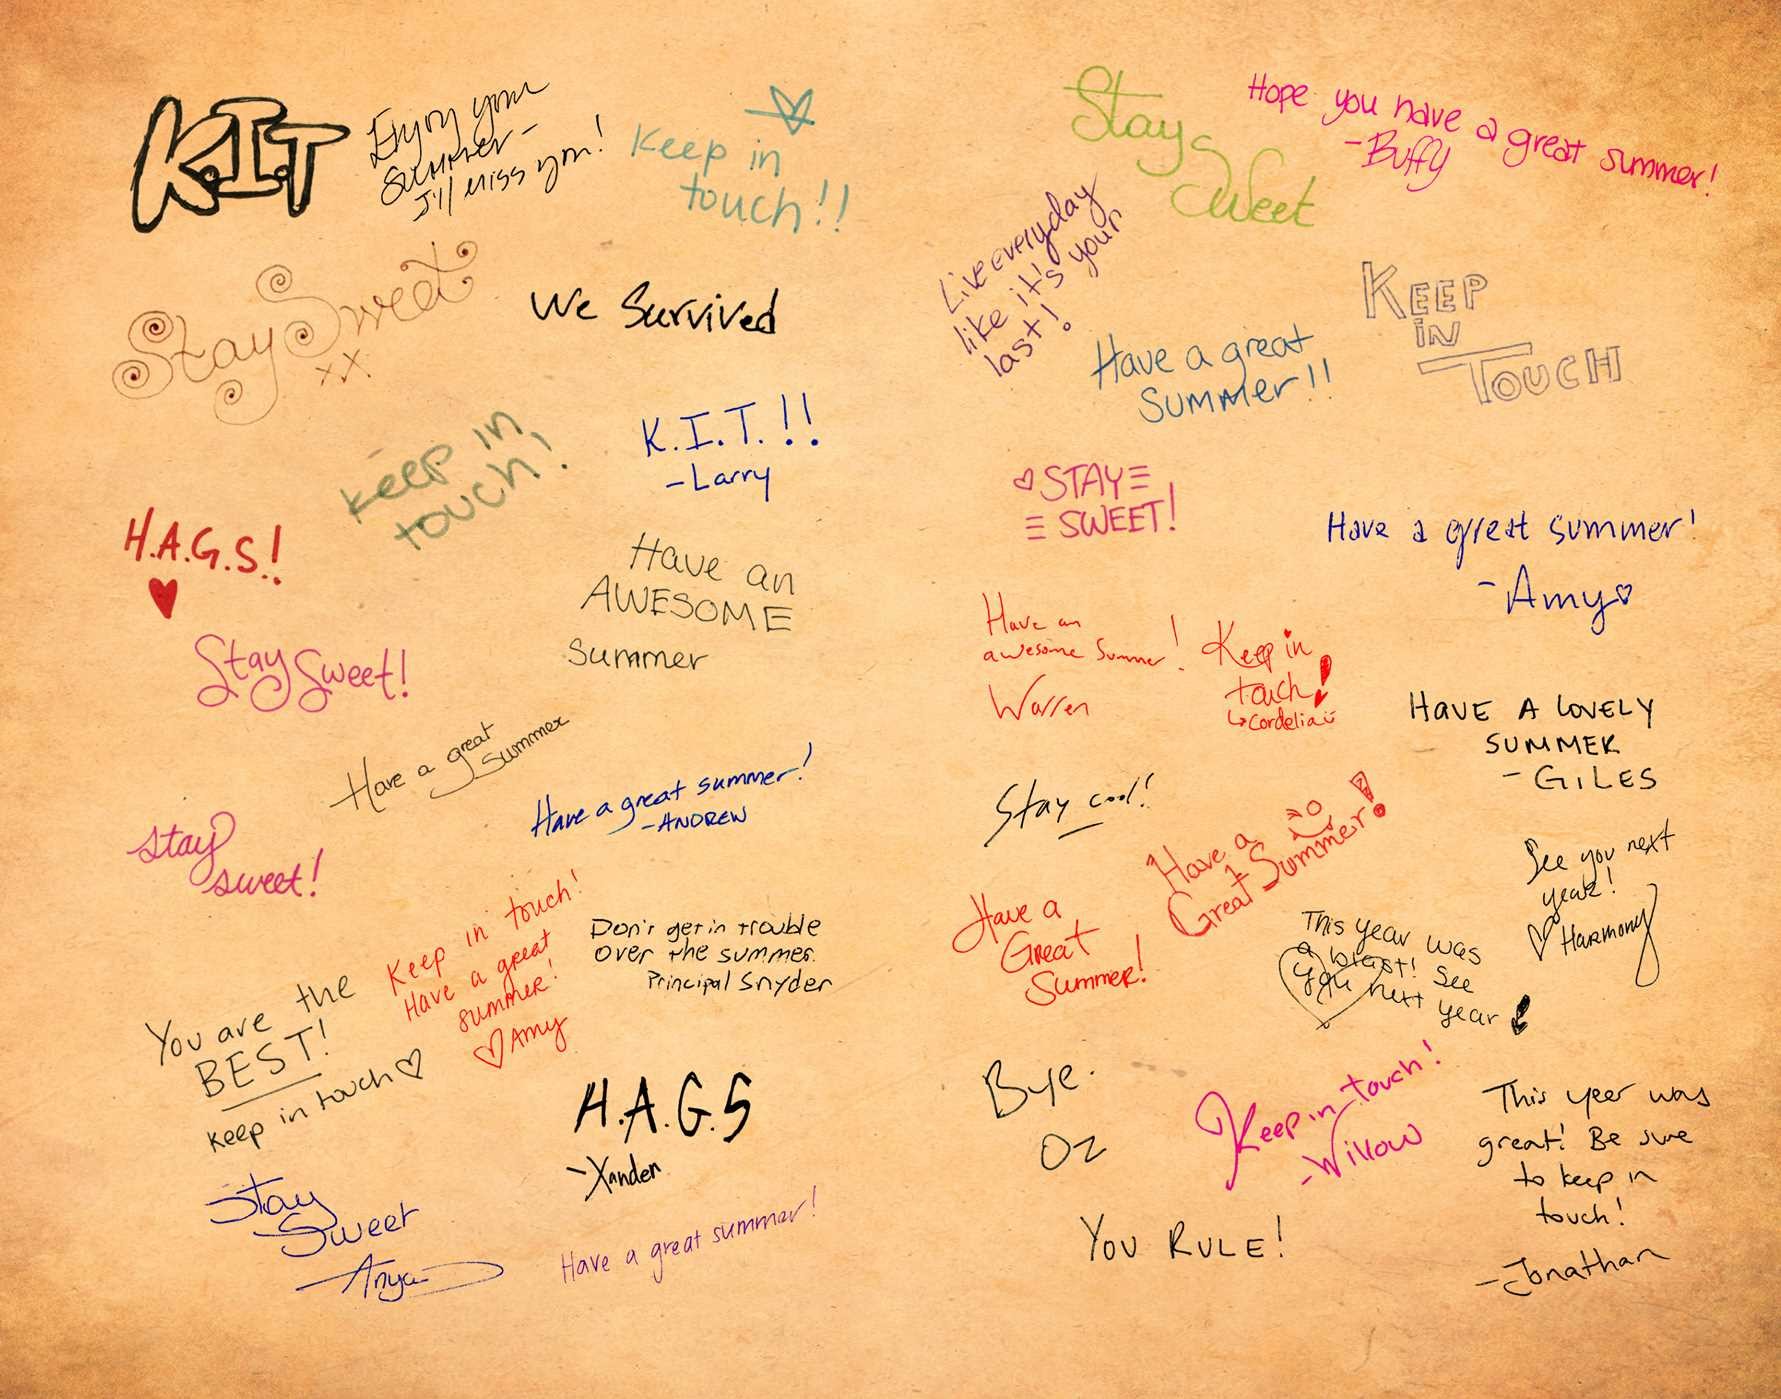 K.I.T
Enjoy your
summer -
I'll miss you!
Keep in
touch!!
Stay Sweet
xx
We Survived
keep in
touch!
K.I.T.!!
-Larry
H.A.G.S.!
Have an
AWESOME
summer
Stay Sweet!
Have a great
summer
Have a great summer!
-ANDREW
stay
sweet!
Keep in touch!
Have a great
summer!
Amy
Don't get in trouble
over the summer.
Principal Snyder
You are the
BEST!
keep in touch
H.A.G.S
-Xander
Stay
Sweet
Anya
Have a great summer!
Stay
Sweet
Hope you have a great summer!
-Buffy
Live everyday
like it's your
last!
Have a great
summer!!
KEEP
iN
TOUCH
STAY
SWEET!
Have a great summer!
-Amy
Have an
awesome summer!
Warren
Keep in
touch!
Cordelia
HAVE A LOVELY
SUMMER
-GILES
Stay cool!
Have a
Great Summer!
See you next
year!
Harmony
Have a
Great
Summer!
This year was
a blast! See
you next year!
Bye.
Oz
Keep in touch!
-Willow
This year was
great! Be sure
to keep in
touch!
-Jonathan
YOU RULE!